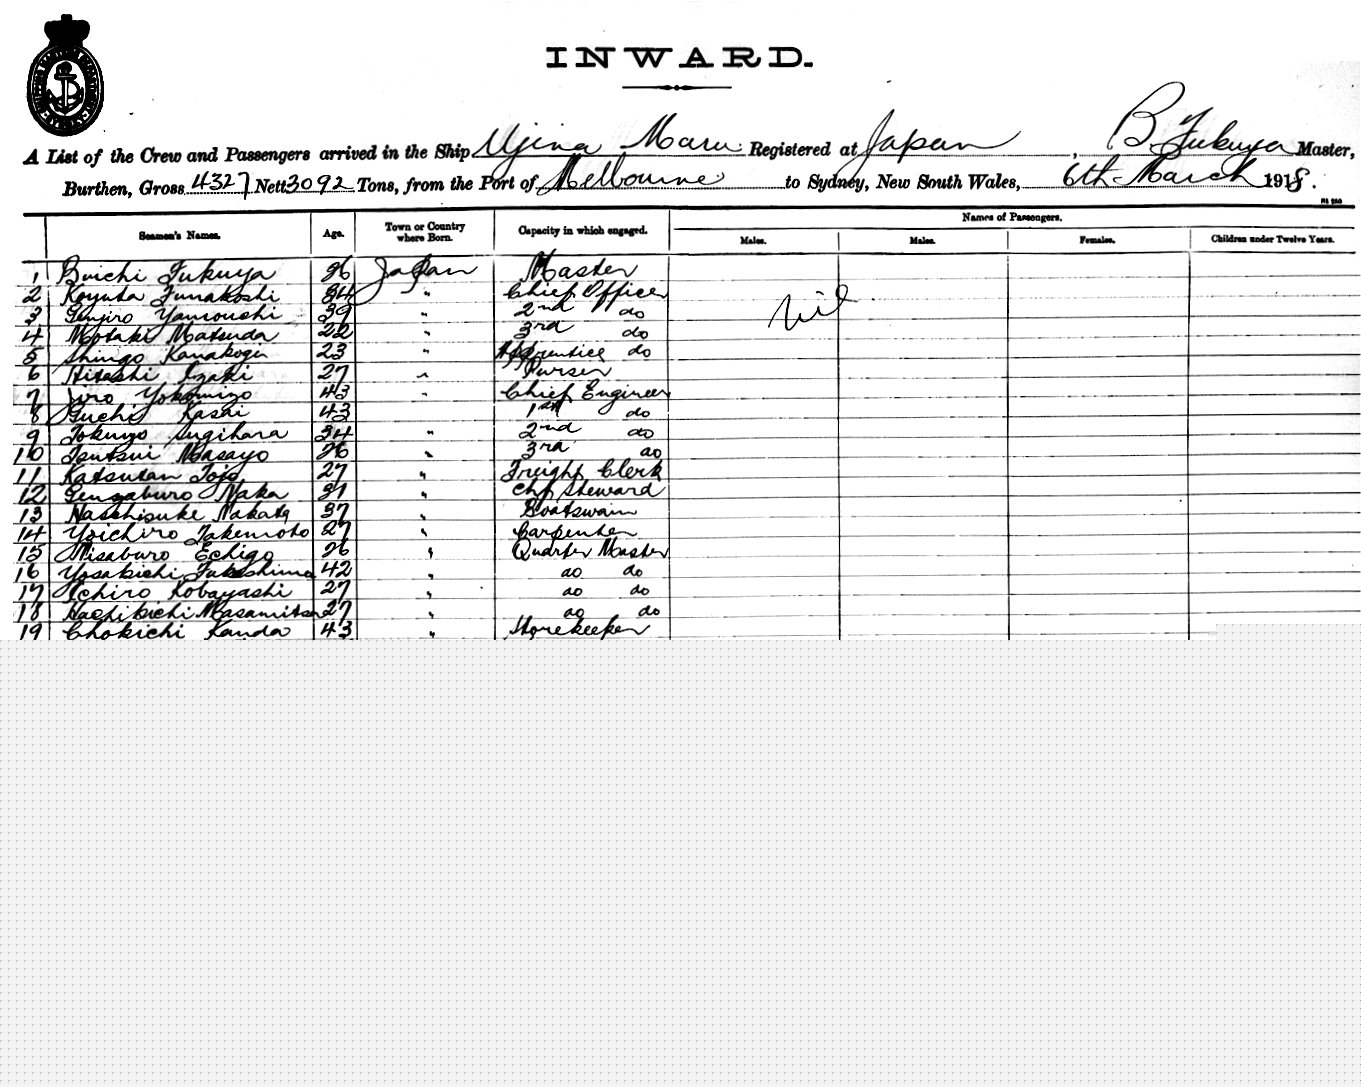 INWARD.
A List of the Crew and Passengers arrived in the Ship Ujina Maru Registered at Japan, B Fukuya Master,
Burthen, Gross 4327 Nett 3092 Tons, from the Port of Melbourne to Sydney, New South Wales, 6th March 1918.
Seamen's Names. Age. Town or Country where Born. Capacity in which engaged. Names of Passengers.
Males. Males. Females. Children under Twelve Years.
1 Buichi Fukuya 36 Japan Master
2 Koyuta Funakoshi 34 " Chief Officer Nil
3 Genjiro Yamouchi 39 " 2nd do
4 Motaki Matsuda 22 " 3rd do
5 Shingo Kanakogu 23 " Apprentice do
6 Hitoshi Izaki 27 " Purser
7 Jiro Yokomizo 43 " Chief Engineer
8 Guchi Kasai 43 1st do
9 Tokuyo Sugihara 34 " 2nd do
10 Tsutsui Masayo 26 " 3rd do
11 Katsutan Tojo 27 " Freight Clerk
12 Genzaburo Naka 31 " Chf Steward
13 Naschisuke Nakata 37 " Boatswain
14 Yoichiro Takemoto 27 " Carpenter
15 Misaburo Echigo 26 " Quarter Master
16 Yosakichi Fukushima 42 " do do
17 Ichiro Kobayashi 27 " do do
18 Hachikichi Masamitsu 27 " do do
19 Chokichi Kanda 43 " Storekeeper